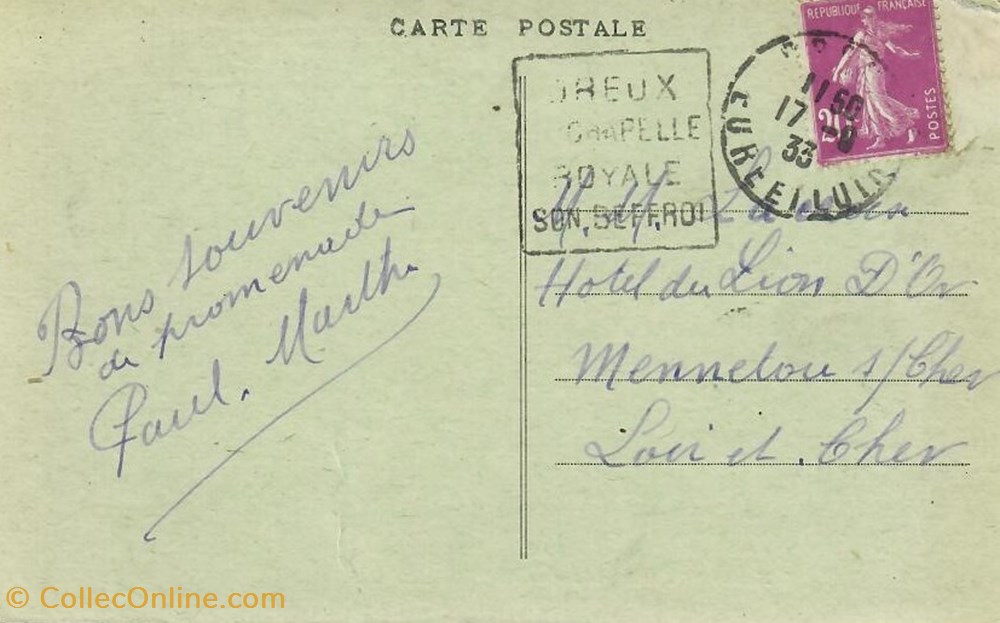 CARTE POSTALE
RÉPUBLIQUE FRANÇAISE
POSTES
DREUX
CHAPELLE
ROYALE
SON BEFFROI
11 50
17
33
EURE ET LOIR
Bons souvenirs
de promenade
Paul. Marthe
M. M.
Hotel du Lion D'Or
Mennetou s/Cher
Loir et Cher
© CollecOnline.com